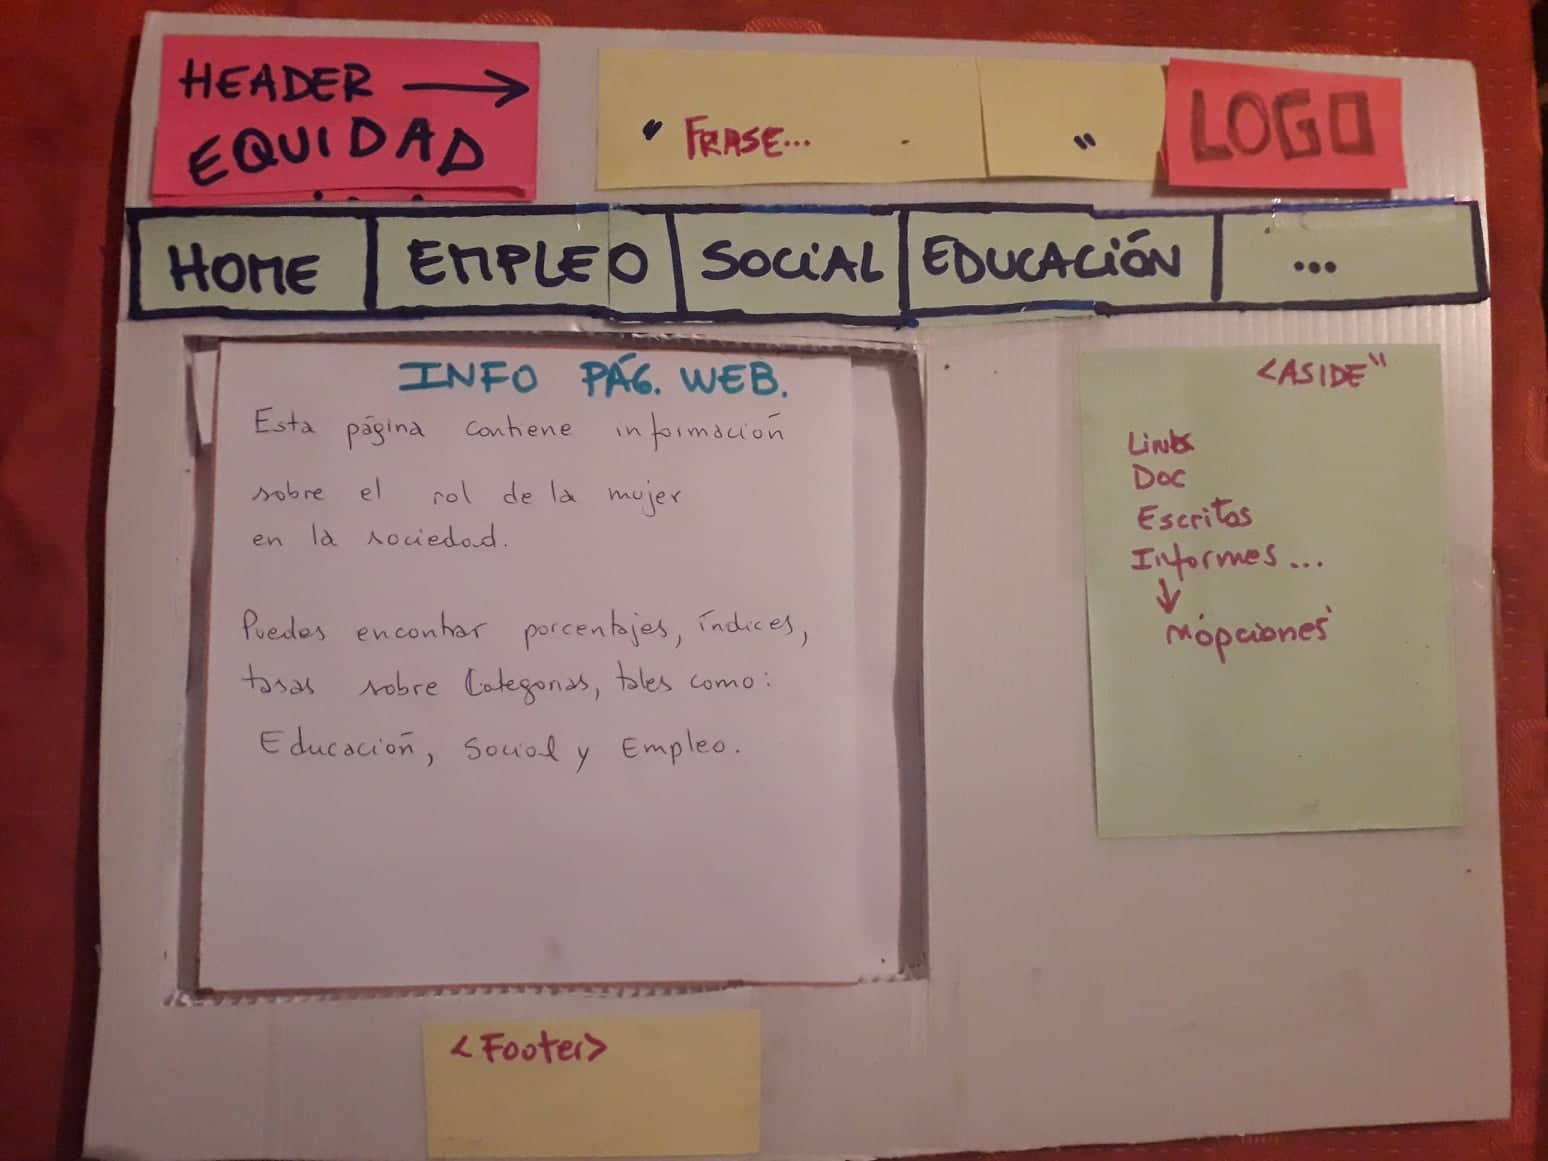 HEADER →
EQUIDAD
" FRASE... "
LOGO
HOME
EMPLEO
SOCIAL
EDUCACIÓN
...
INFO PÁG. WEB.
Esta página contiene información
sobre el rol de la mujer
en la sociedad.
Puedes encontrar porcentajes, índices,
tasas sobre Categorías, tales como:
Educación, Social y Empleo.
<ASIDE"
Links
Doc
Escritos
Informes ...
↓
opciones
<Footer>